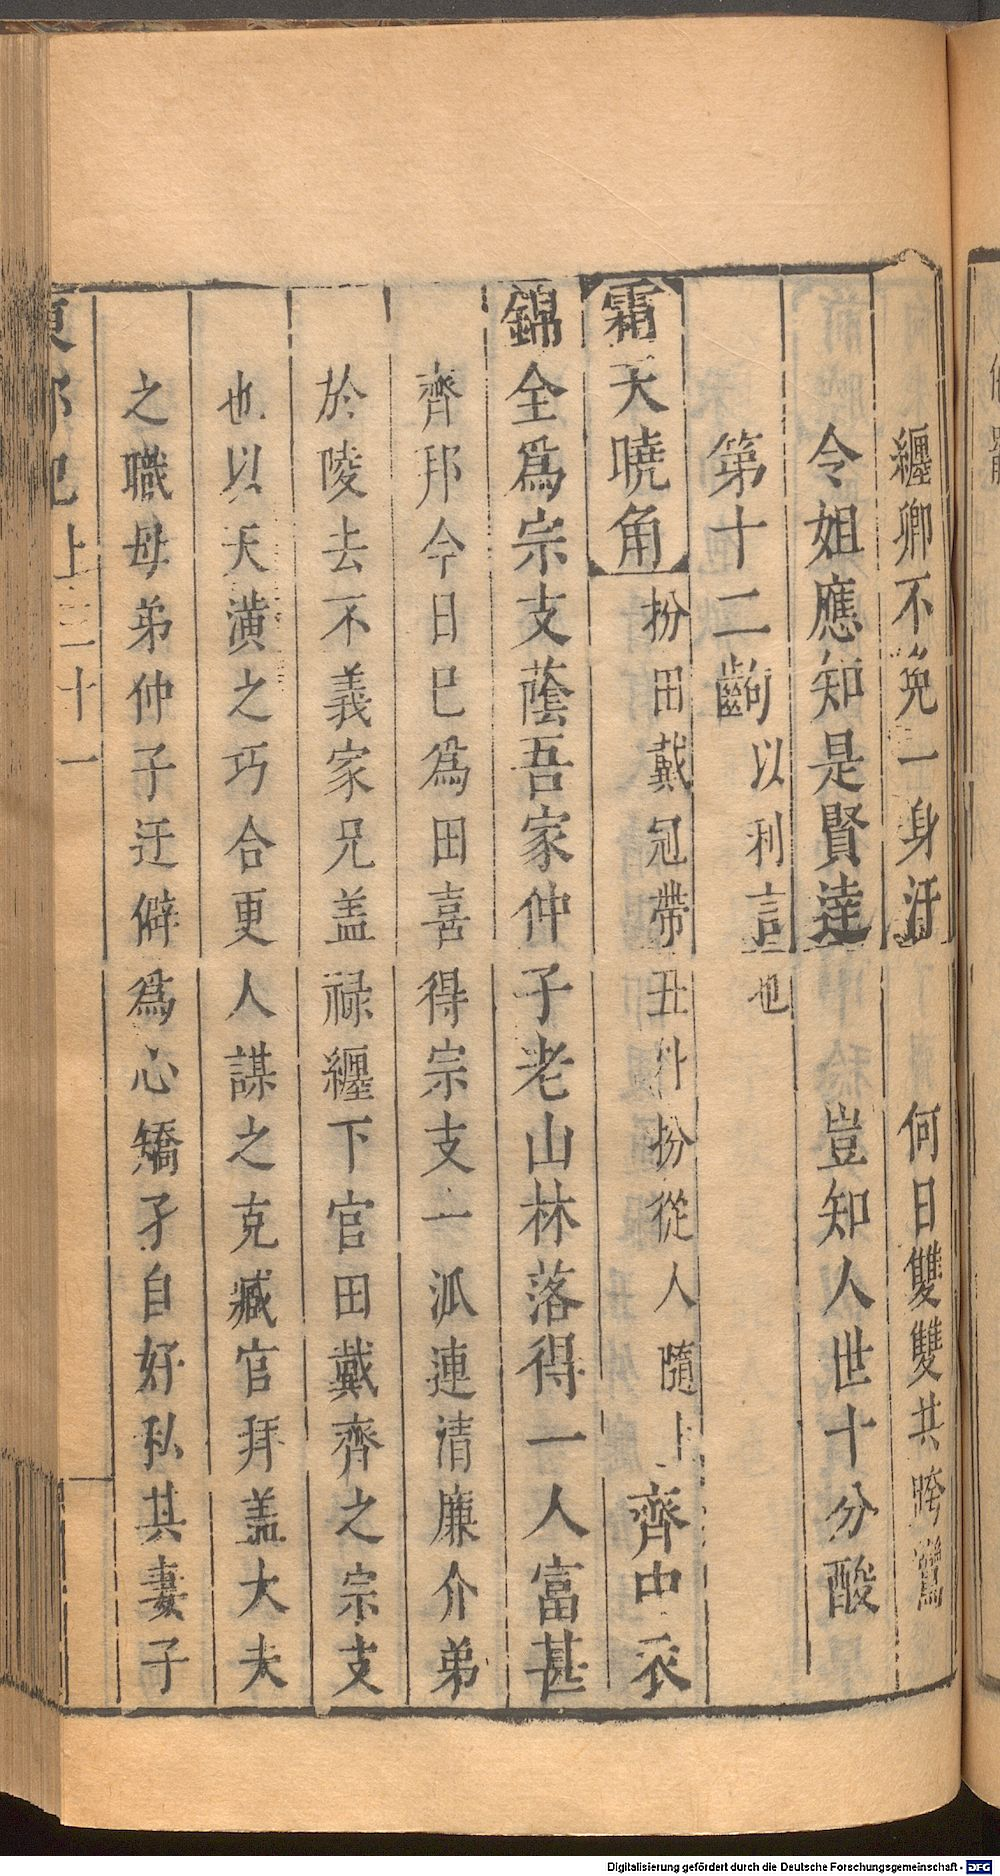 纏卿不免一身汙　何日雙雙共跨鸞
令姐應知是賢達　豈知人世十分酸
第十二齣以利言也
霜天曉角扮田戴冠帶丑外扮從人隨上齊中衣
錦全爲宗支蔭吾家仲子老山林落得一人富甚
齊邦今日巳爲田喜得宗支一泒連清廉介弟
於陵去不義家兄盖祿纏下官田戴齊之宗支
也以天潢之巧合更人謀之克臧官拜盖大夫
之職母弟仲子迂僻爲心矯孑自好私其妻子
上三十一
Digitalisierung gefördert durch die Deutsche Forschungsgemeinschaft - DFG